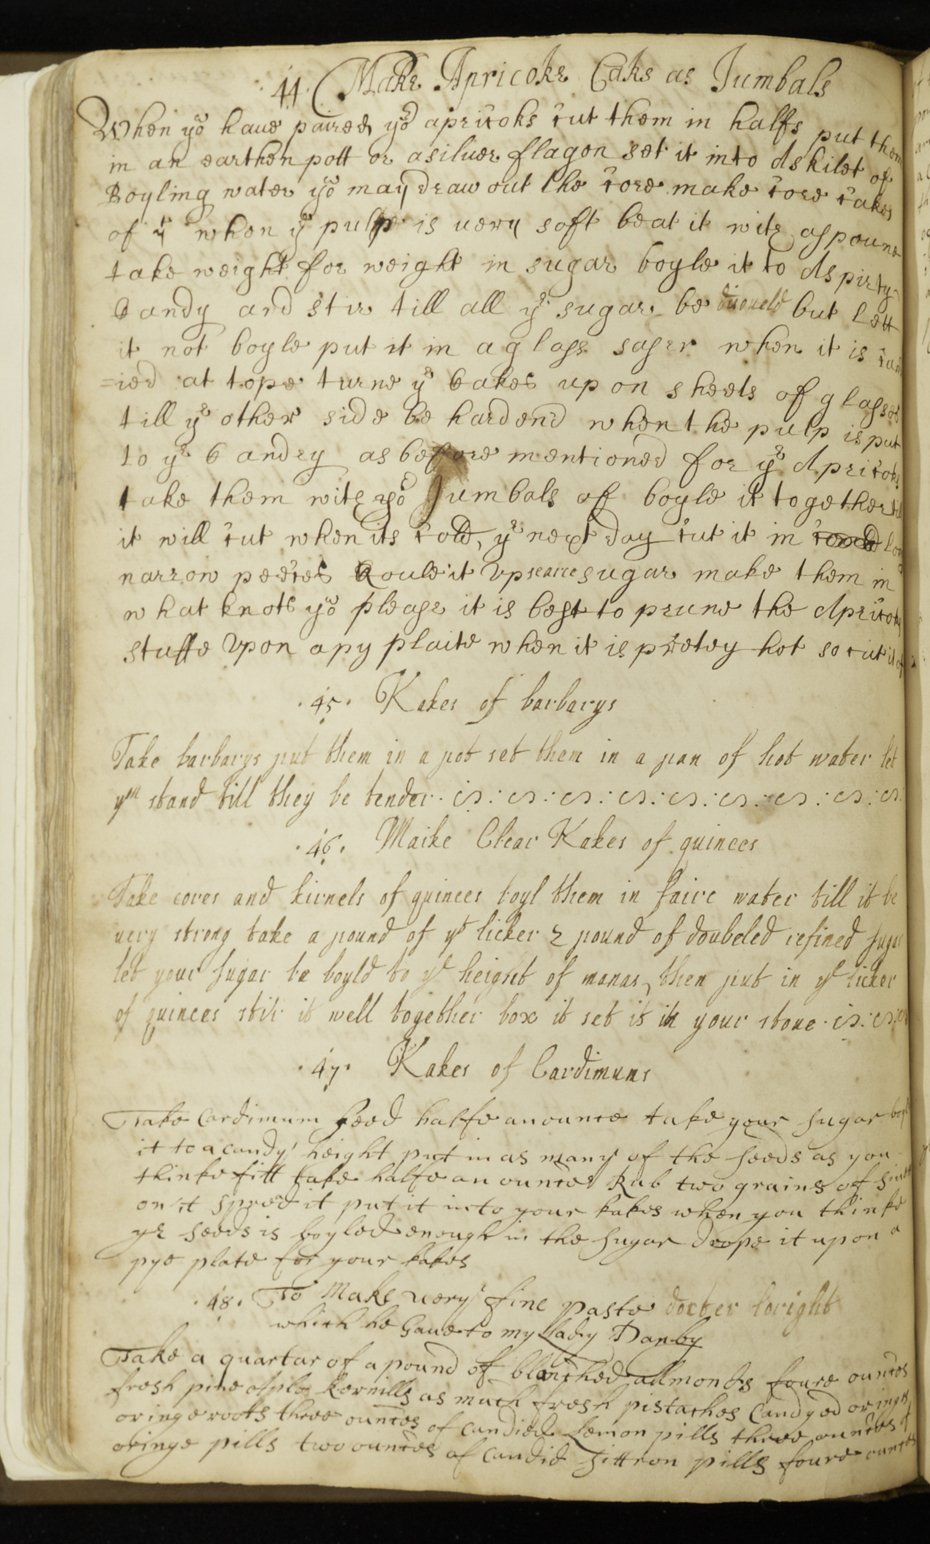 44 Make Apricoke Caks as Jumbals
When yo haue paired yo apricoks cut them in halfs put them
in an earthen pott or a siluer flagon set it into A skilet of
Boyling water yo may draw out the core make core cakes
of y when ye pulpe is uery soft beat it with a spoune
take weight for weight in sugar boyle it to A spirty
Candy and stir till all ye sugar be but lett
it not boyle put it in a glass saser when it is
=ied at tope turne ye Cakes up on sheets of glasses
till ye other side be hardend when the pulp is put
to ye Candry as before mentioned for ye Apricoks
take them with yo Jumbals of boyle it together
it will cut when its cold, ye next day cut it in
narrow peeces Roule it Vp searce sugar make them in
what knots yo please it is best to prune the Apricok
stuffe Vpon a py plaite when it is pretey hot so cut it
.45. Kakes of barbarys
Take barbarys put them in a pot set them in a pan of hot water let
ym stand till they be tender
.46. Maike Clear Kakes of quinces
Take cores and kirnels of quinces boyl them in faire water till it be
uery strong take a pound of yt licker 2 pound of doubeled refined sugar
let your sugar be boyld to ye height of manas, then put in ye licker
of quinces stir it well together box it set it in your stoue
.47. Kakes of Cardimuns
Take Cardimum seed halfe an ounce take your sugar boyl
it to a candy height put in as many of the seeds as you
thinke fitt take halfe an ounce Rub two grains of
on it spred it put it into your kakes when you thinke
ye seeds is boyled enough in the sugar drope it upon a
pye plate for your kakes
.48. To Make uery fine paste docter
which he Gaue to my Lady Danby
Take a quartar of a pound of blanched allmonds foure ounces
fresh pine aple kernills as much fresh pistaches Candyed oringes
oringe roots three ounces of candied Lemon pills three ounces of
oringe pills two ounces of Candid sittron pills foure ounces